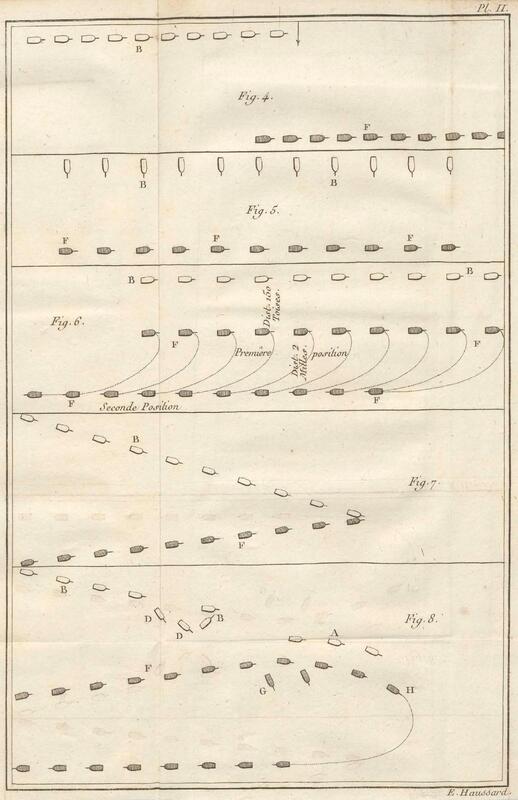 Pl. II.
B
Fig. 4.
F
B
B
Fig. 5.
F
F
F
B
B
Fig. 6.
Dist. 150
Toises.
F
F
Première
position
Dist. 2
Milles.
F
F
Seconde Position
B
Fig. 7.
F
B
D
D
B
Fig. 8.
A
F
G
H
E. Haussard.